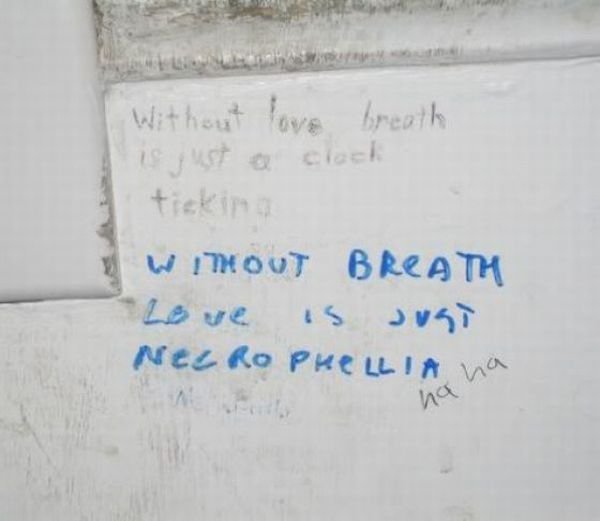 Without love breath
is just a clock
ticking
WITHOUT BREATH
LOVE IS JUST
NECROPHELLIA
ha ha